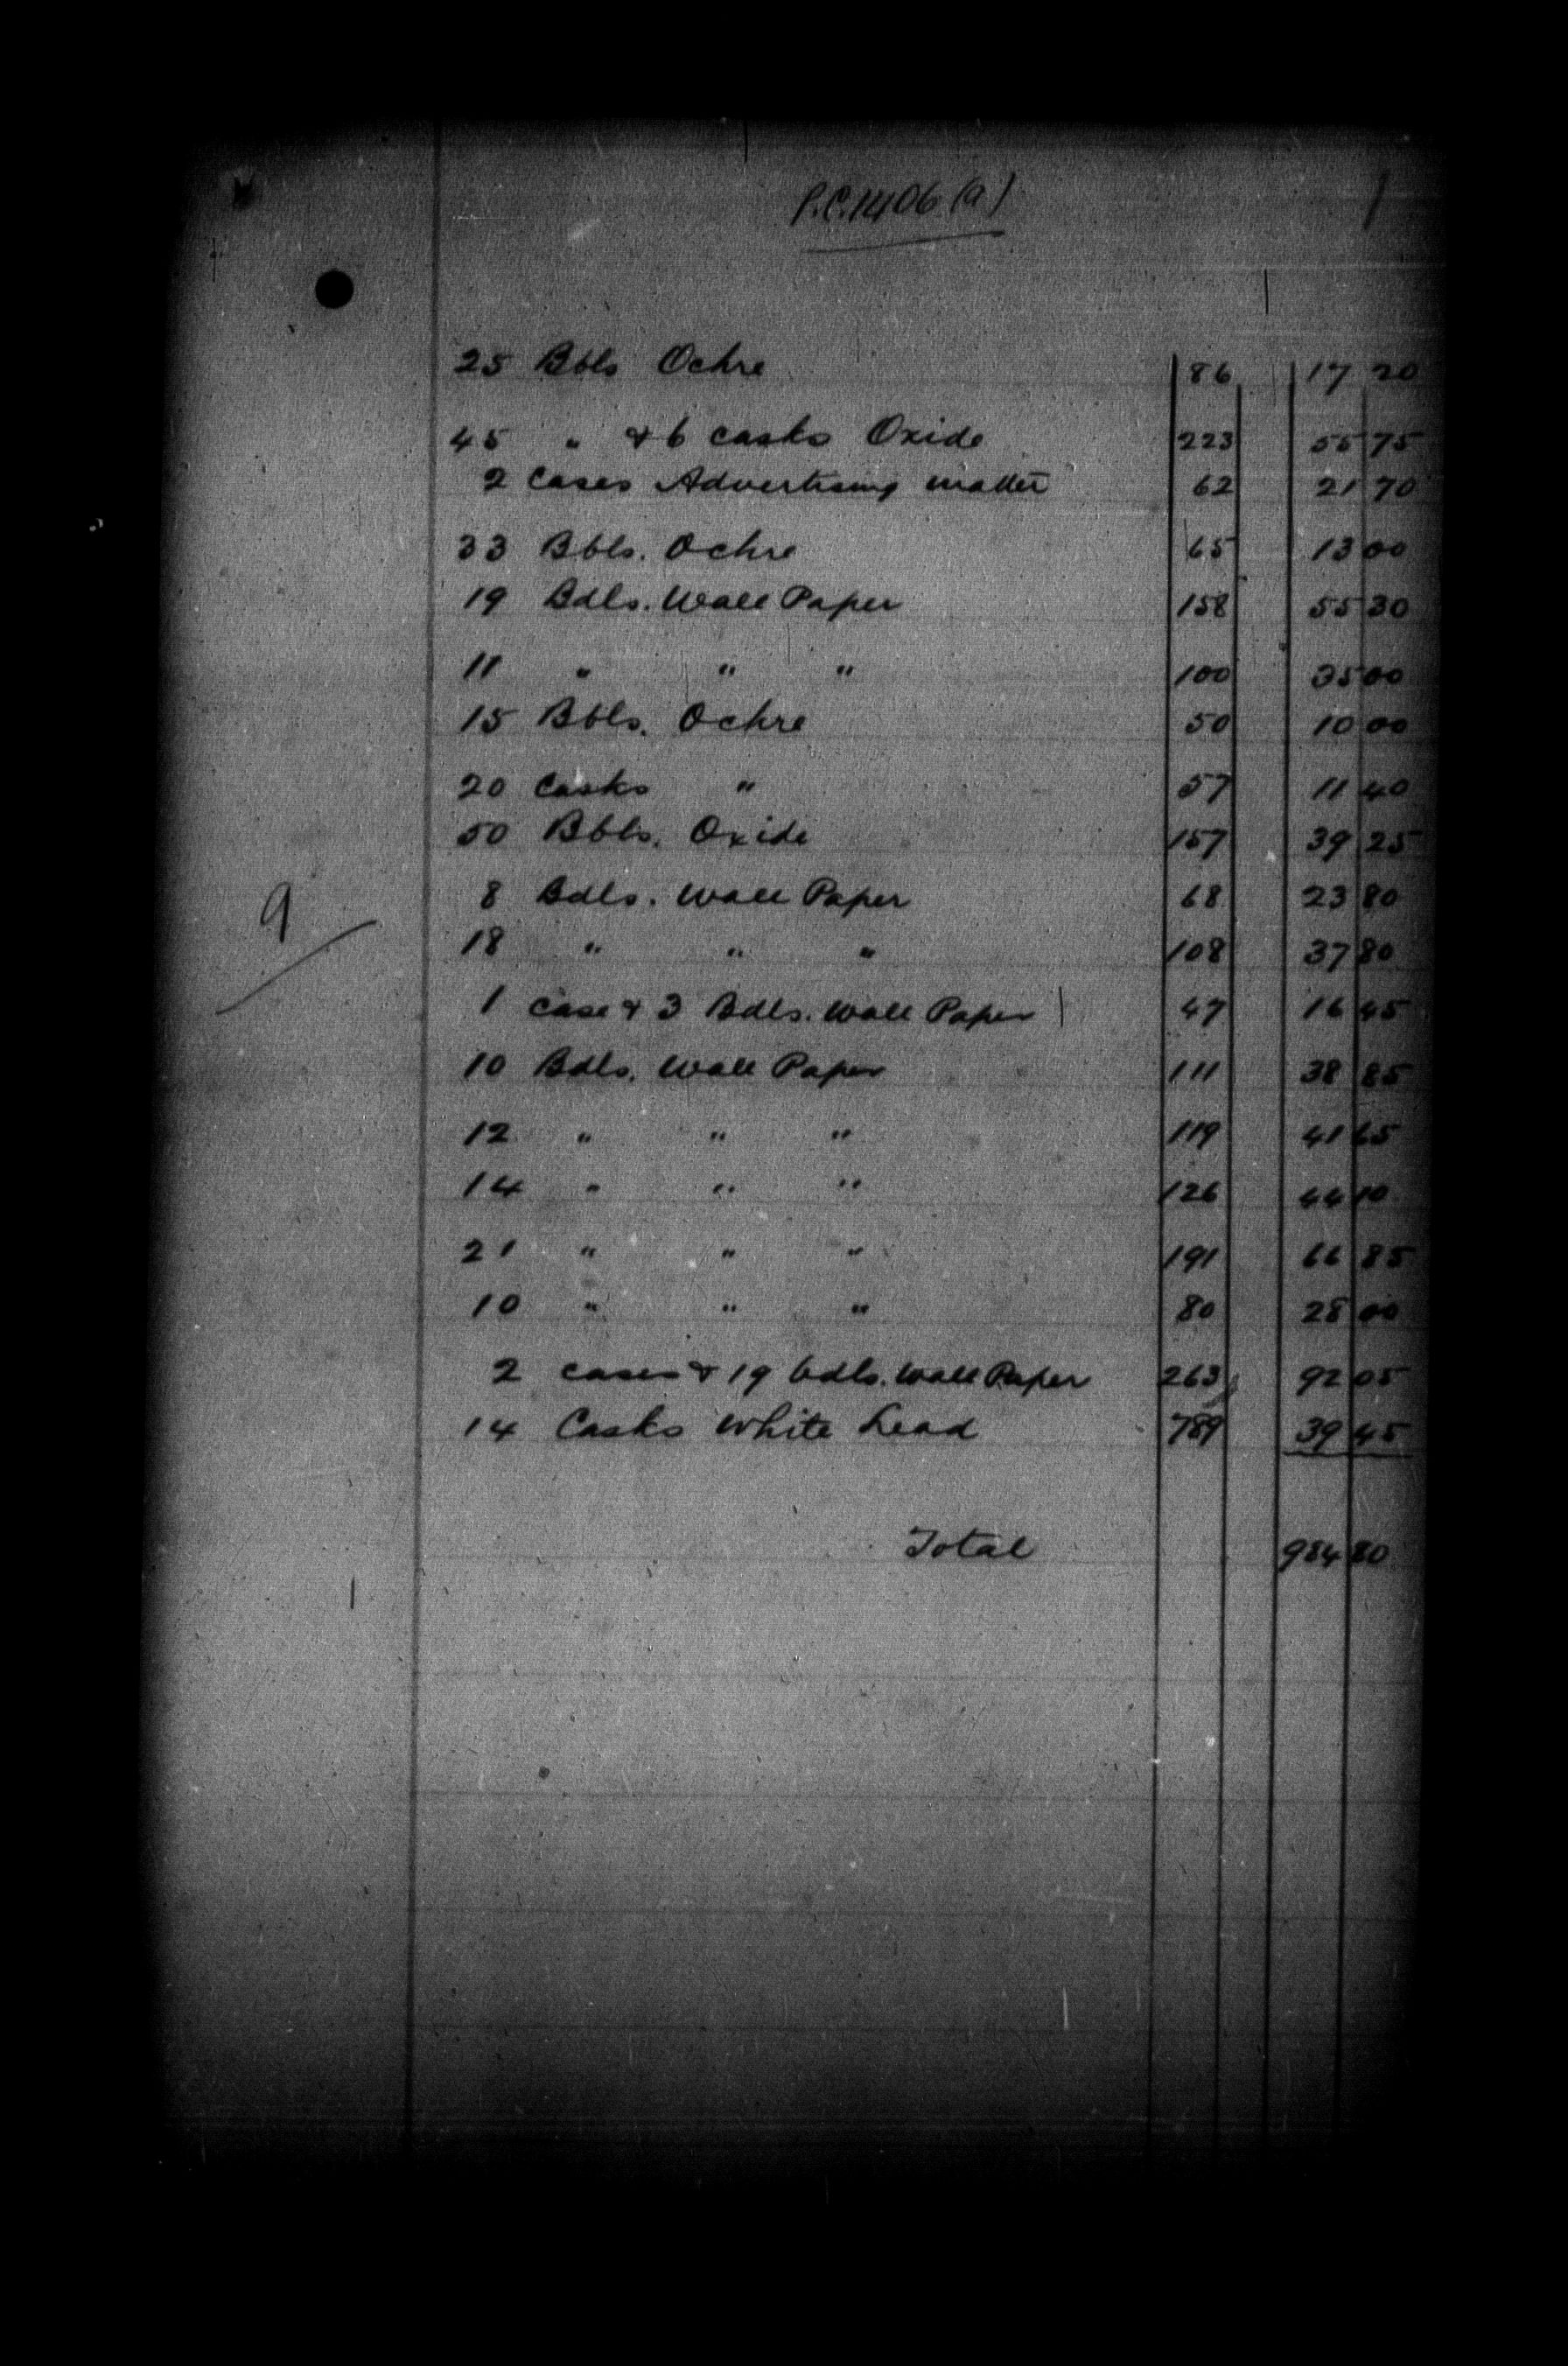 P.C. 1406 (a)
25 Bbls Ochre 86 17 20
45 " & 6 casks Oxide 223 55 75
2 Cases Advertising matter 62 21 70
33 Bbls. Ochre 65 13 00
19 Bdls. Wall Paper 158 55 30
11 " " " 100 35 00
15 Bbls. Ochre 50 10 00
20 Casks " 57 11 40
50 Bbls. Oxide 157 39 25
8 Bdls. Wall Paper 68 23 80
9
18 " " " 108 37 80
1 Case & 3 Bdls. Wall Paper 47 16 45
10 Bdls. Wall Paper 111 38 85
12 " " " 119 41 65
14 " " " 126 44 10
21 " " " 191 66 85
10 " " " 80 28 00
2 cases & 19 bdls. Wall Paper 263 92 05
14 Casks White Lead 789 39 45
Total 984 80